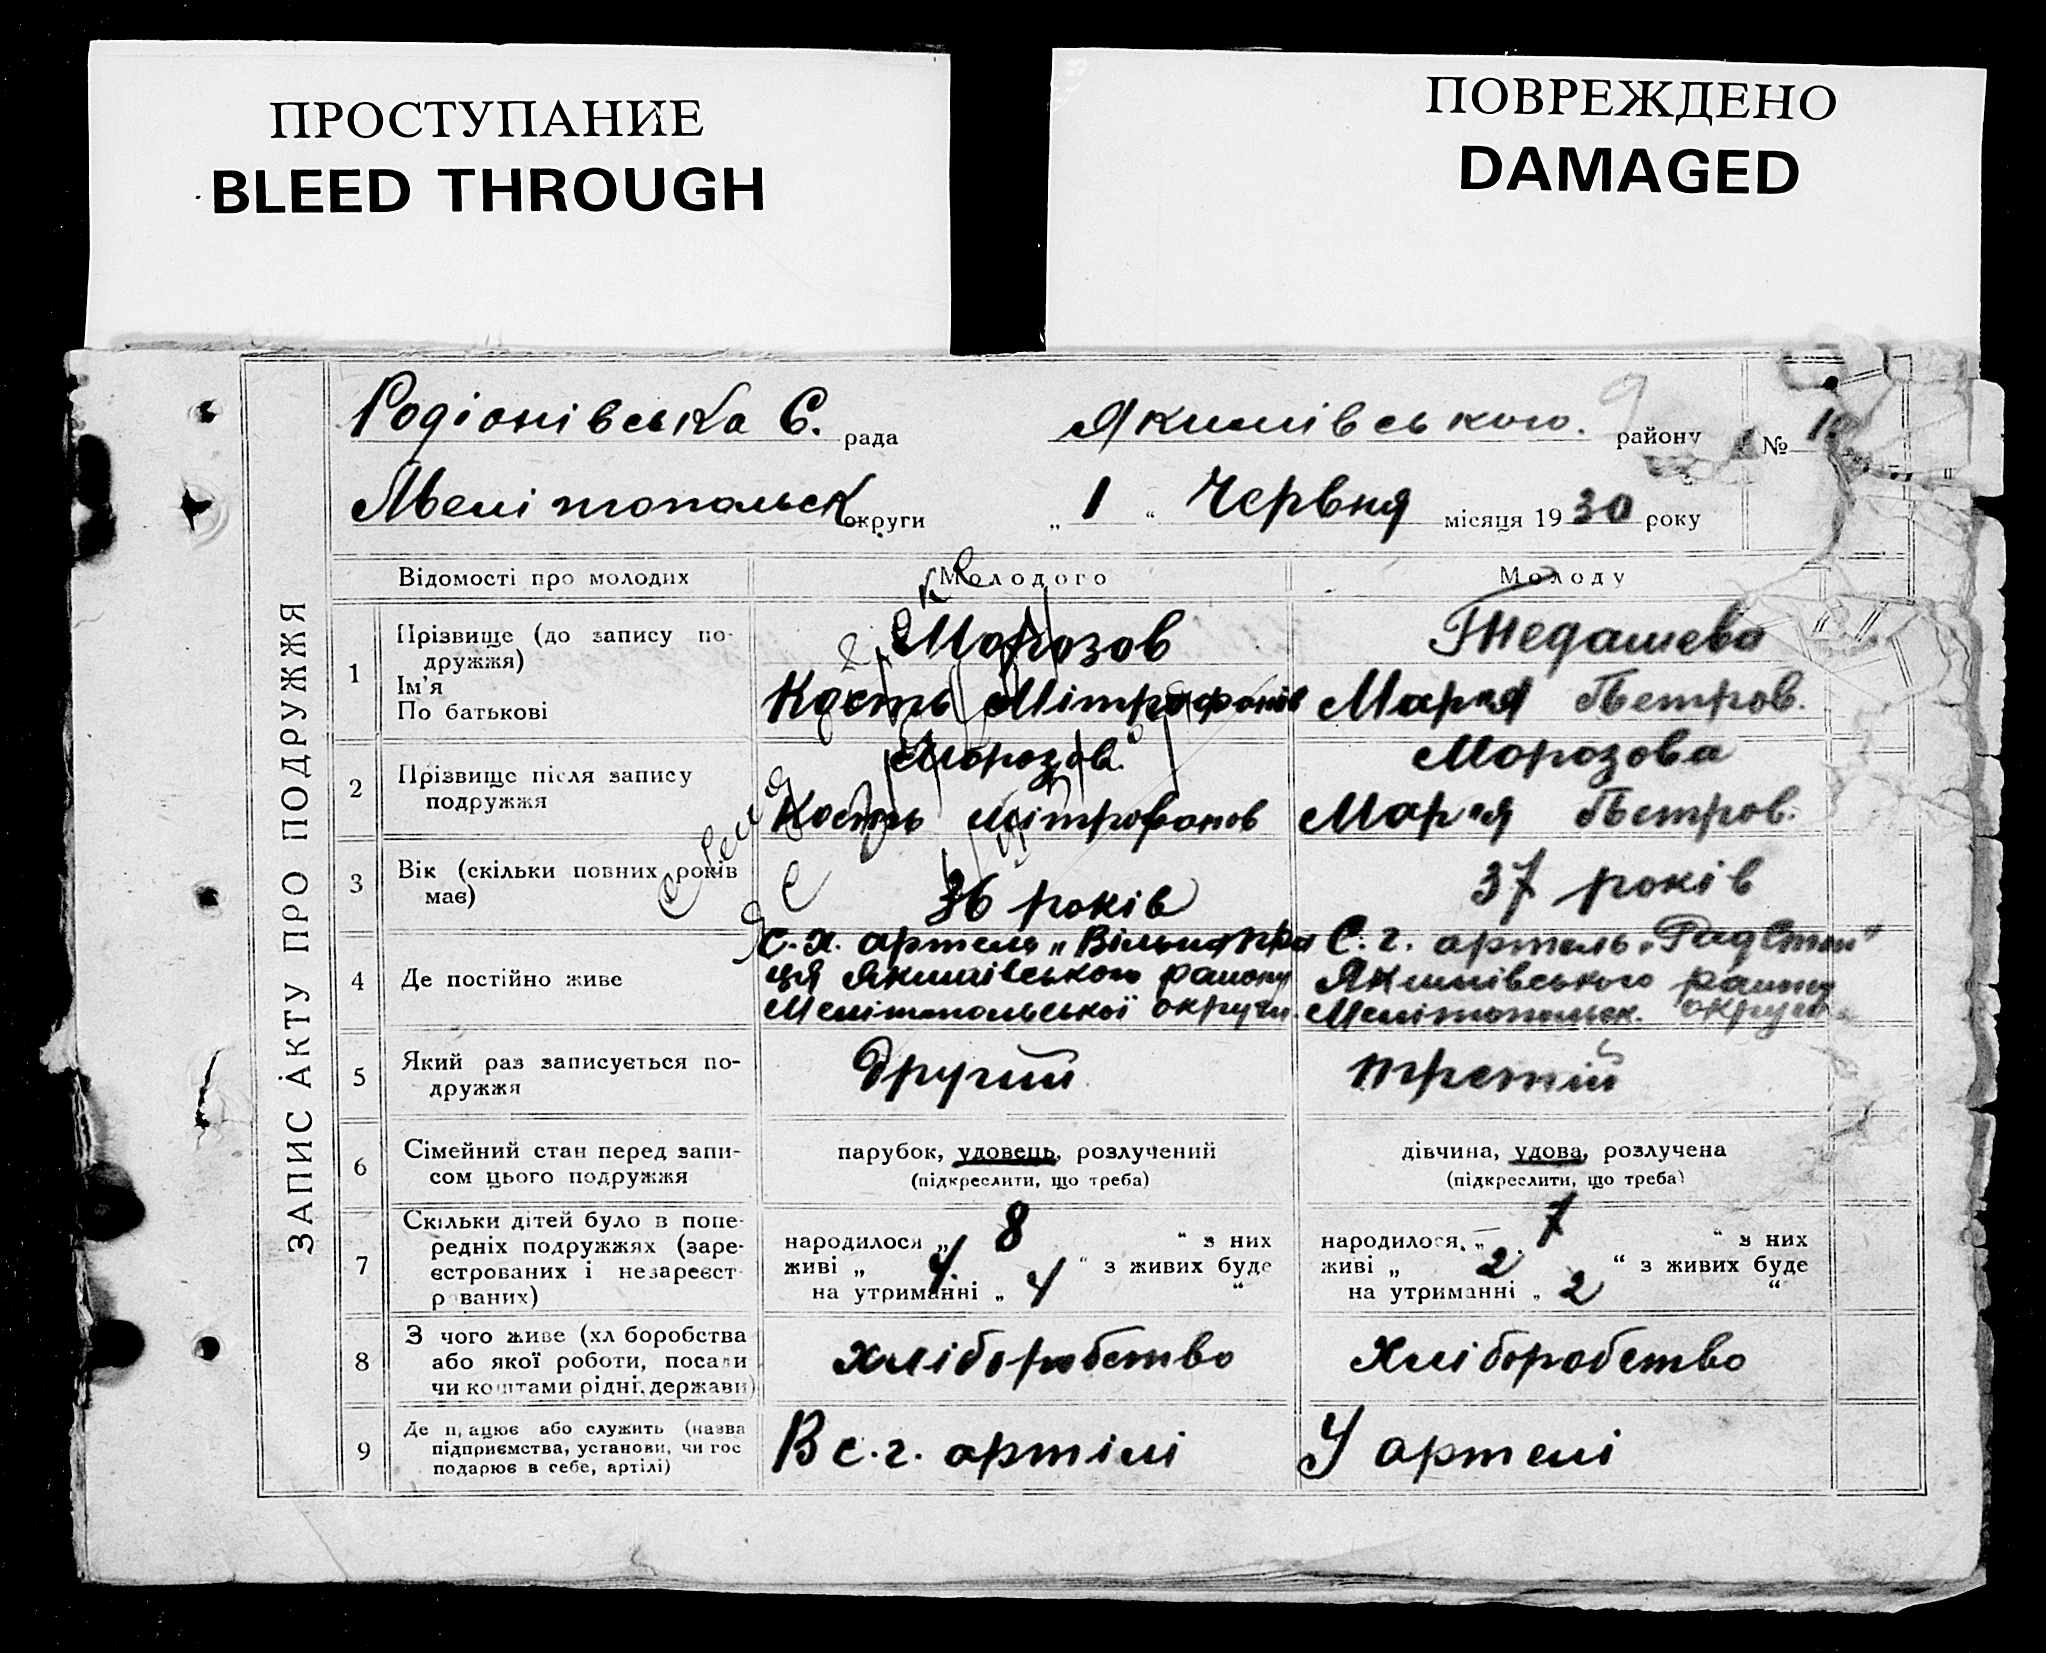 ПРОСТУПАНИЕ
BLEED THROUGH
ПОВРЕЖДЕНО
DAMAGED
ЗАПИС АКТУ ПРО ПОДРУЖЖЯ
Родіонівська С. рада Якимівського. району №
Мелітопольск округи „ 1 “ Червня місяця 1930 року
Відомості про молодих Молодого Молоду
1 Прізвище (до запису по-
дружжя)
Ім'я
По батькові
Морозов
Кость Мітрофанов
Марія Петров.
2 Прізвище після запису
подружжя
Морозов
Кость Мітрофанов
Морозова
Марія Петров.
3 Вік (скільки повних років
має)
36 років
37 років
4 Де постійно живе
с.х. артель „Вільна пра
ця Якимівського району
Мелітопольської округи.
С. г. артель
Якимівського району
Мелітопольск. округи
5 Який раз записується по-
дружжя
Другий
третій
6 Сімейний стан перед запи-
сом цього подружжя
парубок, удовець, розлучений
(підкреслити, що треба)
дівчина, удова, розлучена
(підкреслити, що треба)
7 Скільки дітей було в попе-
редніх подружжях (заре-
єстрованих і незареєст-
рованих)
народилося „ 8 “ з них
живі „ 4 “ з живих буде
на утриманні „ 4 “
народилося „ 7 “ з них
живі „ 2 “ з живих буде
на утриманні „ 2 “
8 З чого живе (хліборобства
або якої роботи, посади
чи коштами рідні, держави)
хліборобство
Хліборобство
9 Де працює або служить (назва
підприємства, установи, чи гос
подарює в себе, артілі)
В с.г. артілі
У артелі